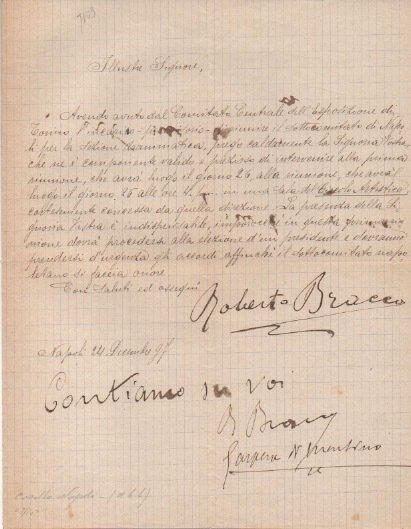 Illustre Signore,
Avendo avuto dal Comitato Centrale dell'Esposizione di
Torino l'incarico di riunire il sottocomitato di Napo
li per la sezione drammatica, prego caldamente la Signoria Vostra,
che ne è componente valido e prezioso di intervenire alla prima
riunione, che avrà luogo il giorno 26, alla riunione, che avrà
luogo il giorno 26 alle ore 4 in una sala del Circolo Artistico
cortesemente concessa da quella direzione. La presenza della Si
gnoria Vostra è indispensabile, imperocchè in questa prima riu
nione dovrà procedersi alla elezione d'un presidente e dovranno
prendersi d'urgenza gli accordi affinchè il sottocomitato napo
letano si faccia onore.
Con saluti ed ossequi
Roberto Bracco
Napoli 24 Decembre 97
Contiamo su voi
R Bracco